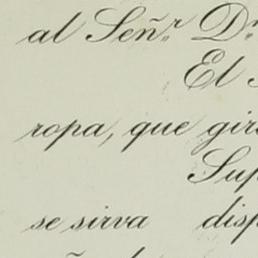 al Señ.r D.r
El
ropa, que gir
Sup
se sirva disp